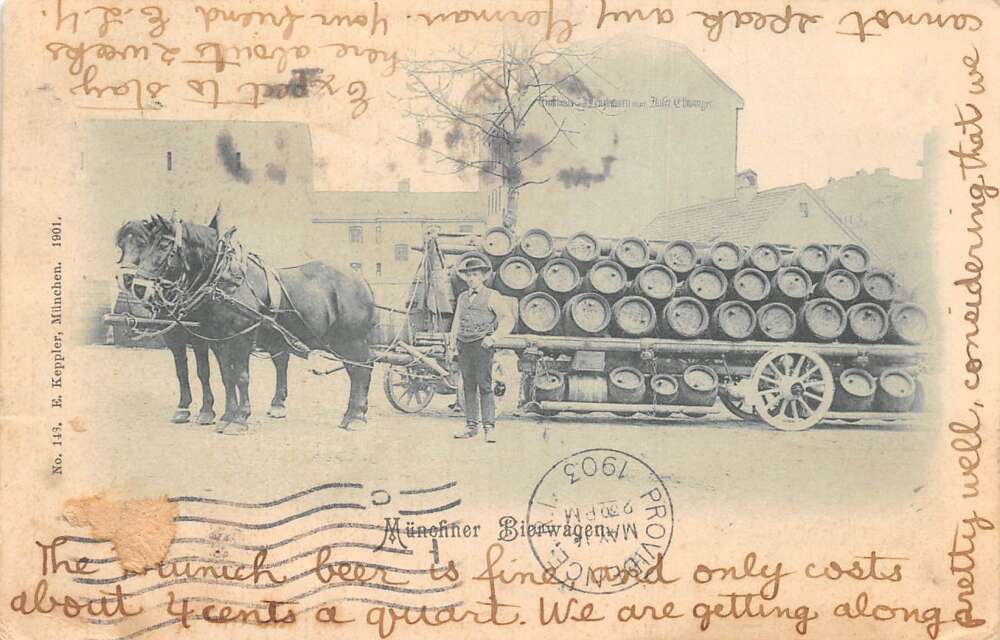 No. 143. E. Keppler, München. 1901.
Münchner Bierwagen.
PROVIDENCE
MAY 16
2 30 PM
1903
C
The Munich beer is fine and only costs
about 4 cents a quart. We are getting along
pretty well, considering that we
cannot speak any German. Your friend E.L.Y.
Expect to stay
here about 2 weeks